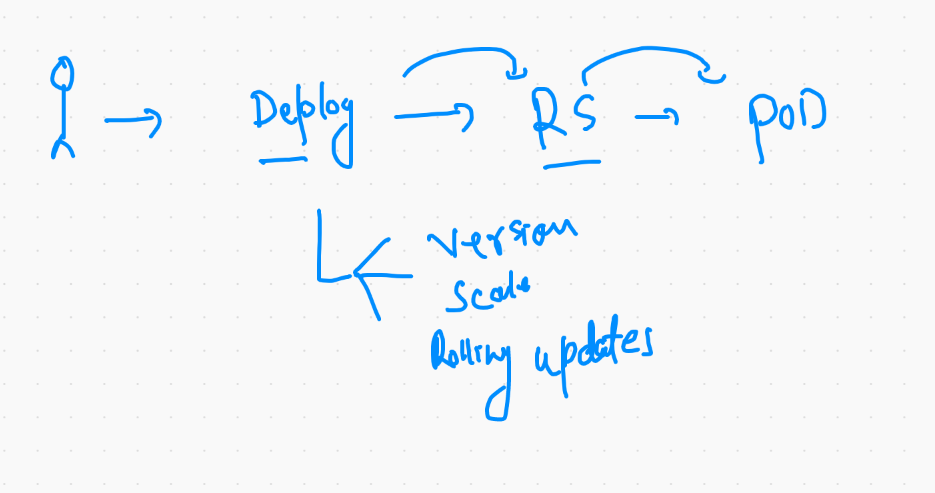 Deploy RS POD
version
scale
Rolling updates